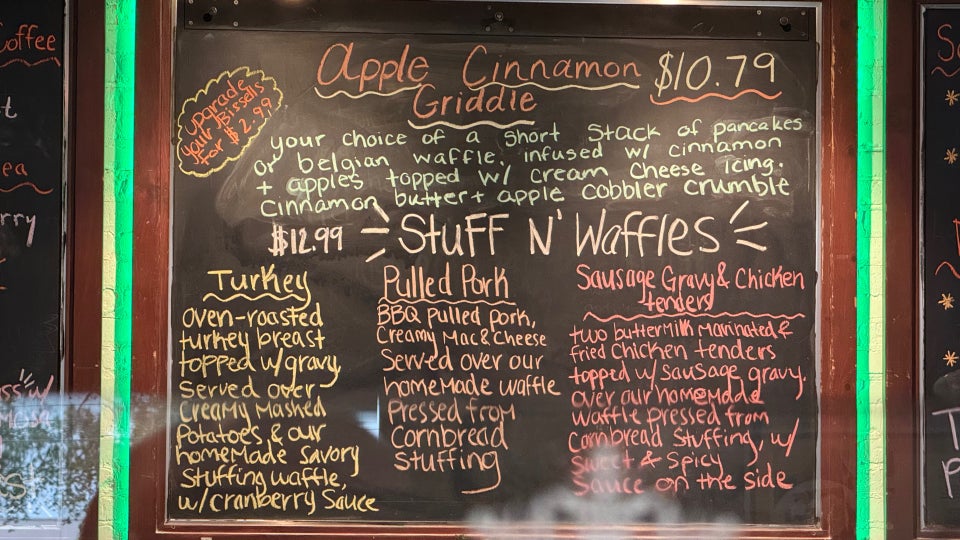 Coffee
ea
rry
upgrade
your Bissells
for $2.99
Apple Cinnamon $10.79
Griddle
your choice of a short stack of pancakes
or belgian waffle, infused w/ cinnamon
+ apples topped w/ cream cheese icing.
cinnamon butter + apple cobbler crumble
$12.99 Stuff N' Waffles
Turkey
oven-roasted
turkey breast
topped w/gravy,
served over
creamy mashed
potatoes & our
homemade savory
stuffing waffle,
w/cranberry sauce
Pulled Pork
BBQ pulled pork,
creamy Mac & Cheese
served over our
homemade waffle
pressed from
Cornbread
stuffing
Sausage Gravy & Chicken
tenders
two buttermilk marinated &
fried chicken tenders
topped w/ sausage gravy.
over our homemade
waffle pressed from
Cornbread stuffing, w/
sweet & spicy
sauce on the side